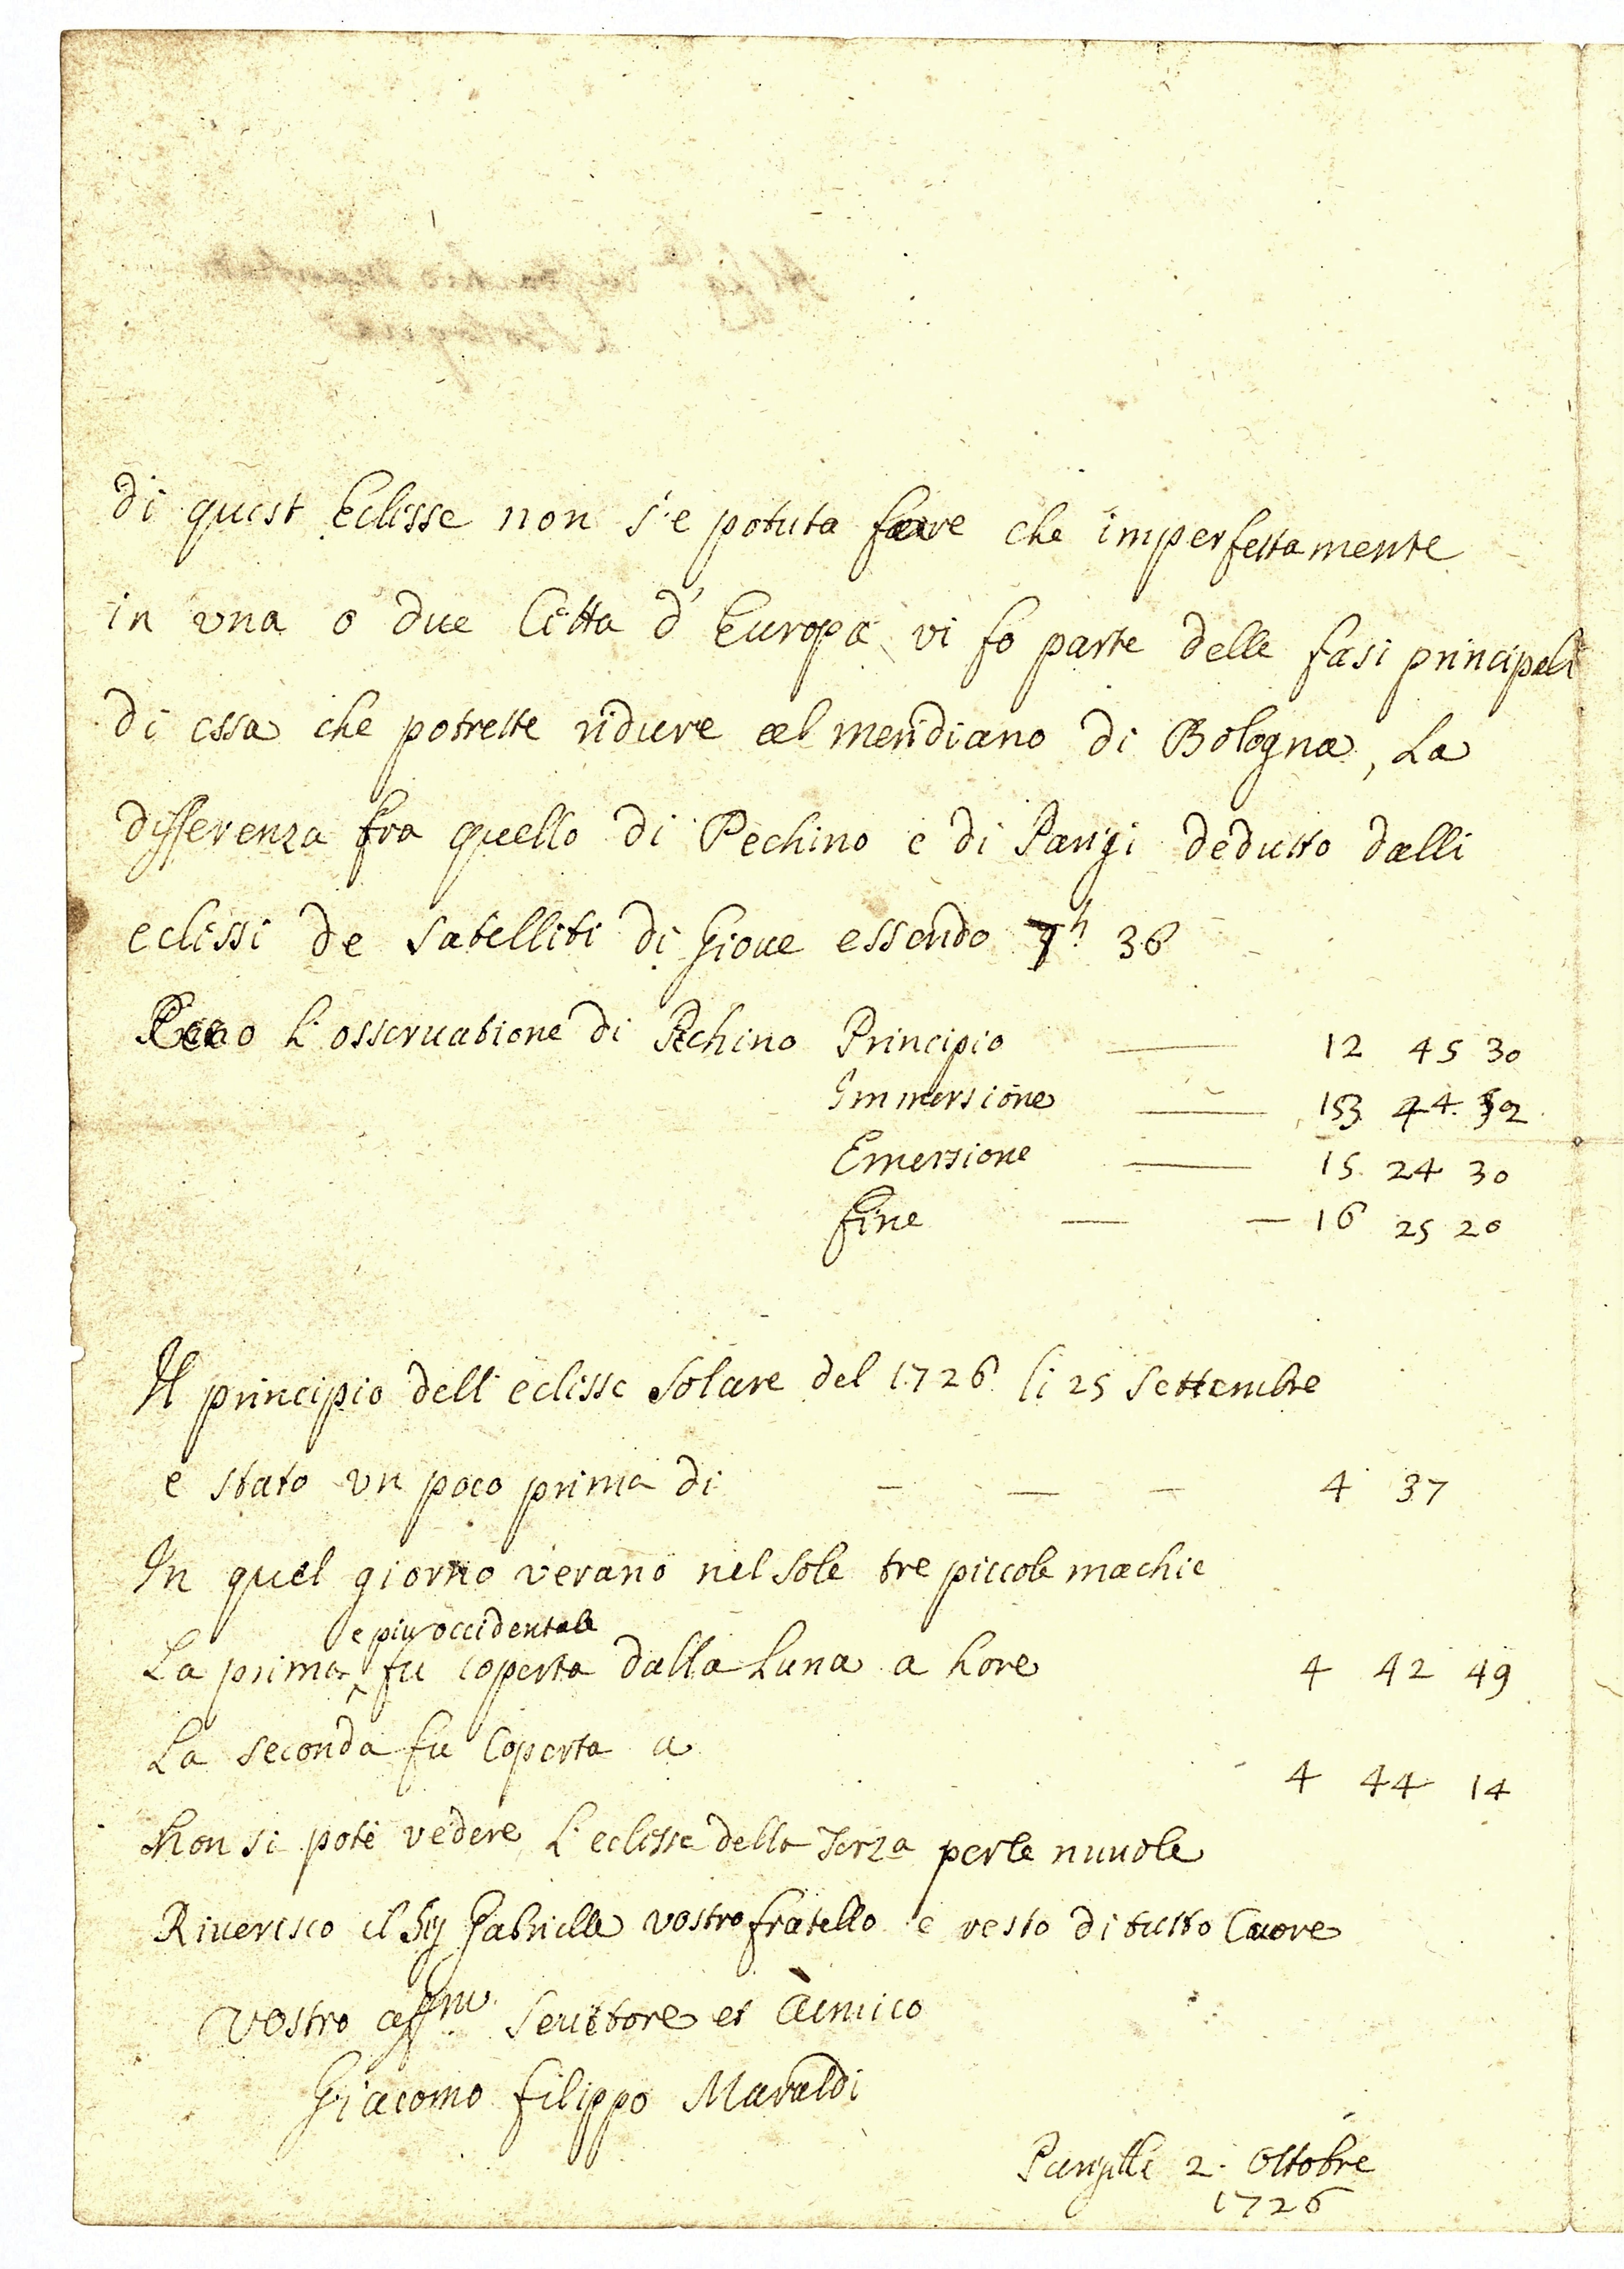 di quest Eclisse non s'e potuta fare che imperfettamente
in una o due Citta d'Europa vi fo parte delle fasi principali
di essa che potrette ridure al meridiano di Bologna, La
differenza fra quello di Pechino e di Parigi dedutto dalli
eclissi de satelliti di Gioue essendo 7h 36
L'osseruatione di Pechino Principio — 12 45 30
Immersione — 13 44
Emersione — 15 24 30
fine — — 16 25 20
Il principio dell'eclisse Solare del 1726 li 25 Settembre
e stato un poco prima di — — — 4 37
In quel giorno verano nel Sole tre piccole machie
e piu occidentale
La prima ^ fu coperta dalla Luna a hore 4 42 49
La seconda fu Coperta a 4 44 14
Non si potè vedere L'eclisse della Terza per le nuuole
Riuerisco il Sig Gabrielle vostro fratello e resto di tutto Cuore
Vostro affmo Seruitore et Amico
Giacomo Filippo Maraldi
Parigi li 2. Ottobre
1726